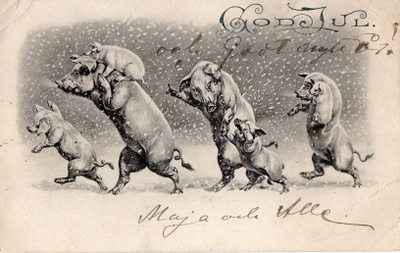 GOD JUL.
och Godt nytt År!
Maja och Alle.